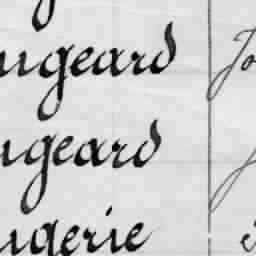 ugeard Jo
ugeard
ugerie